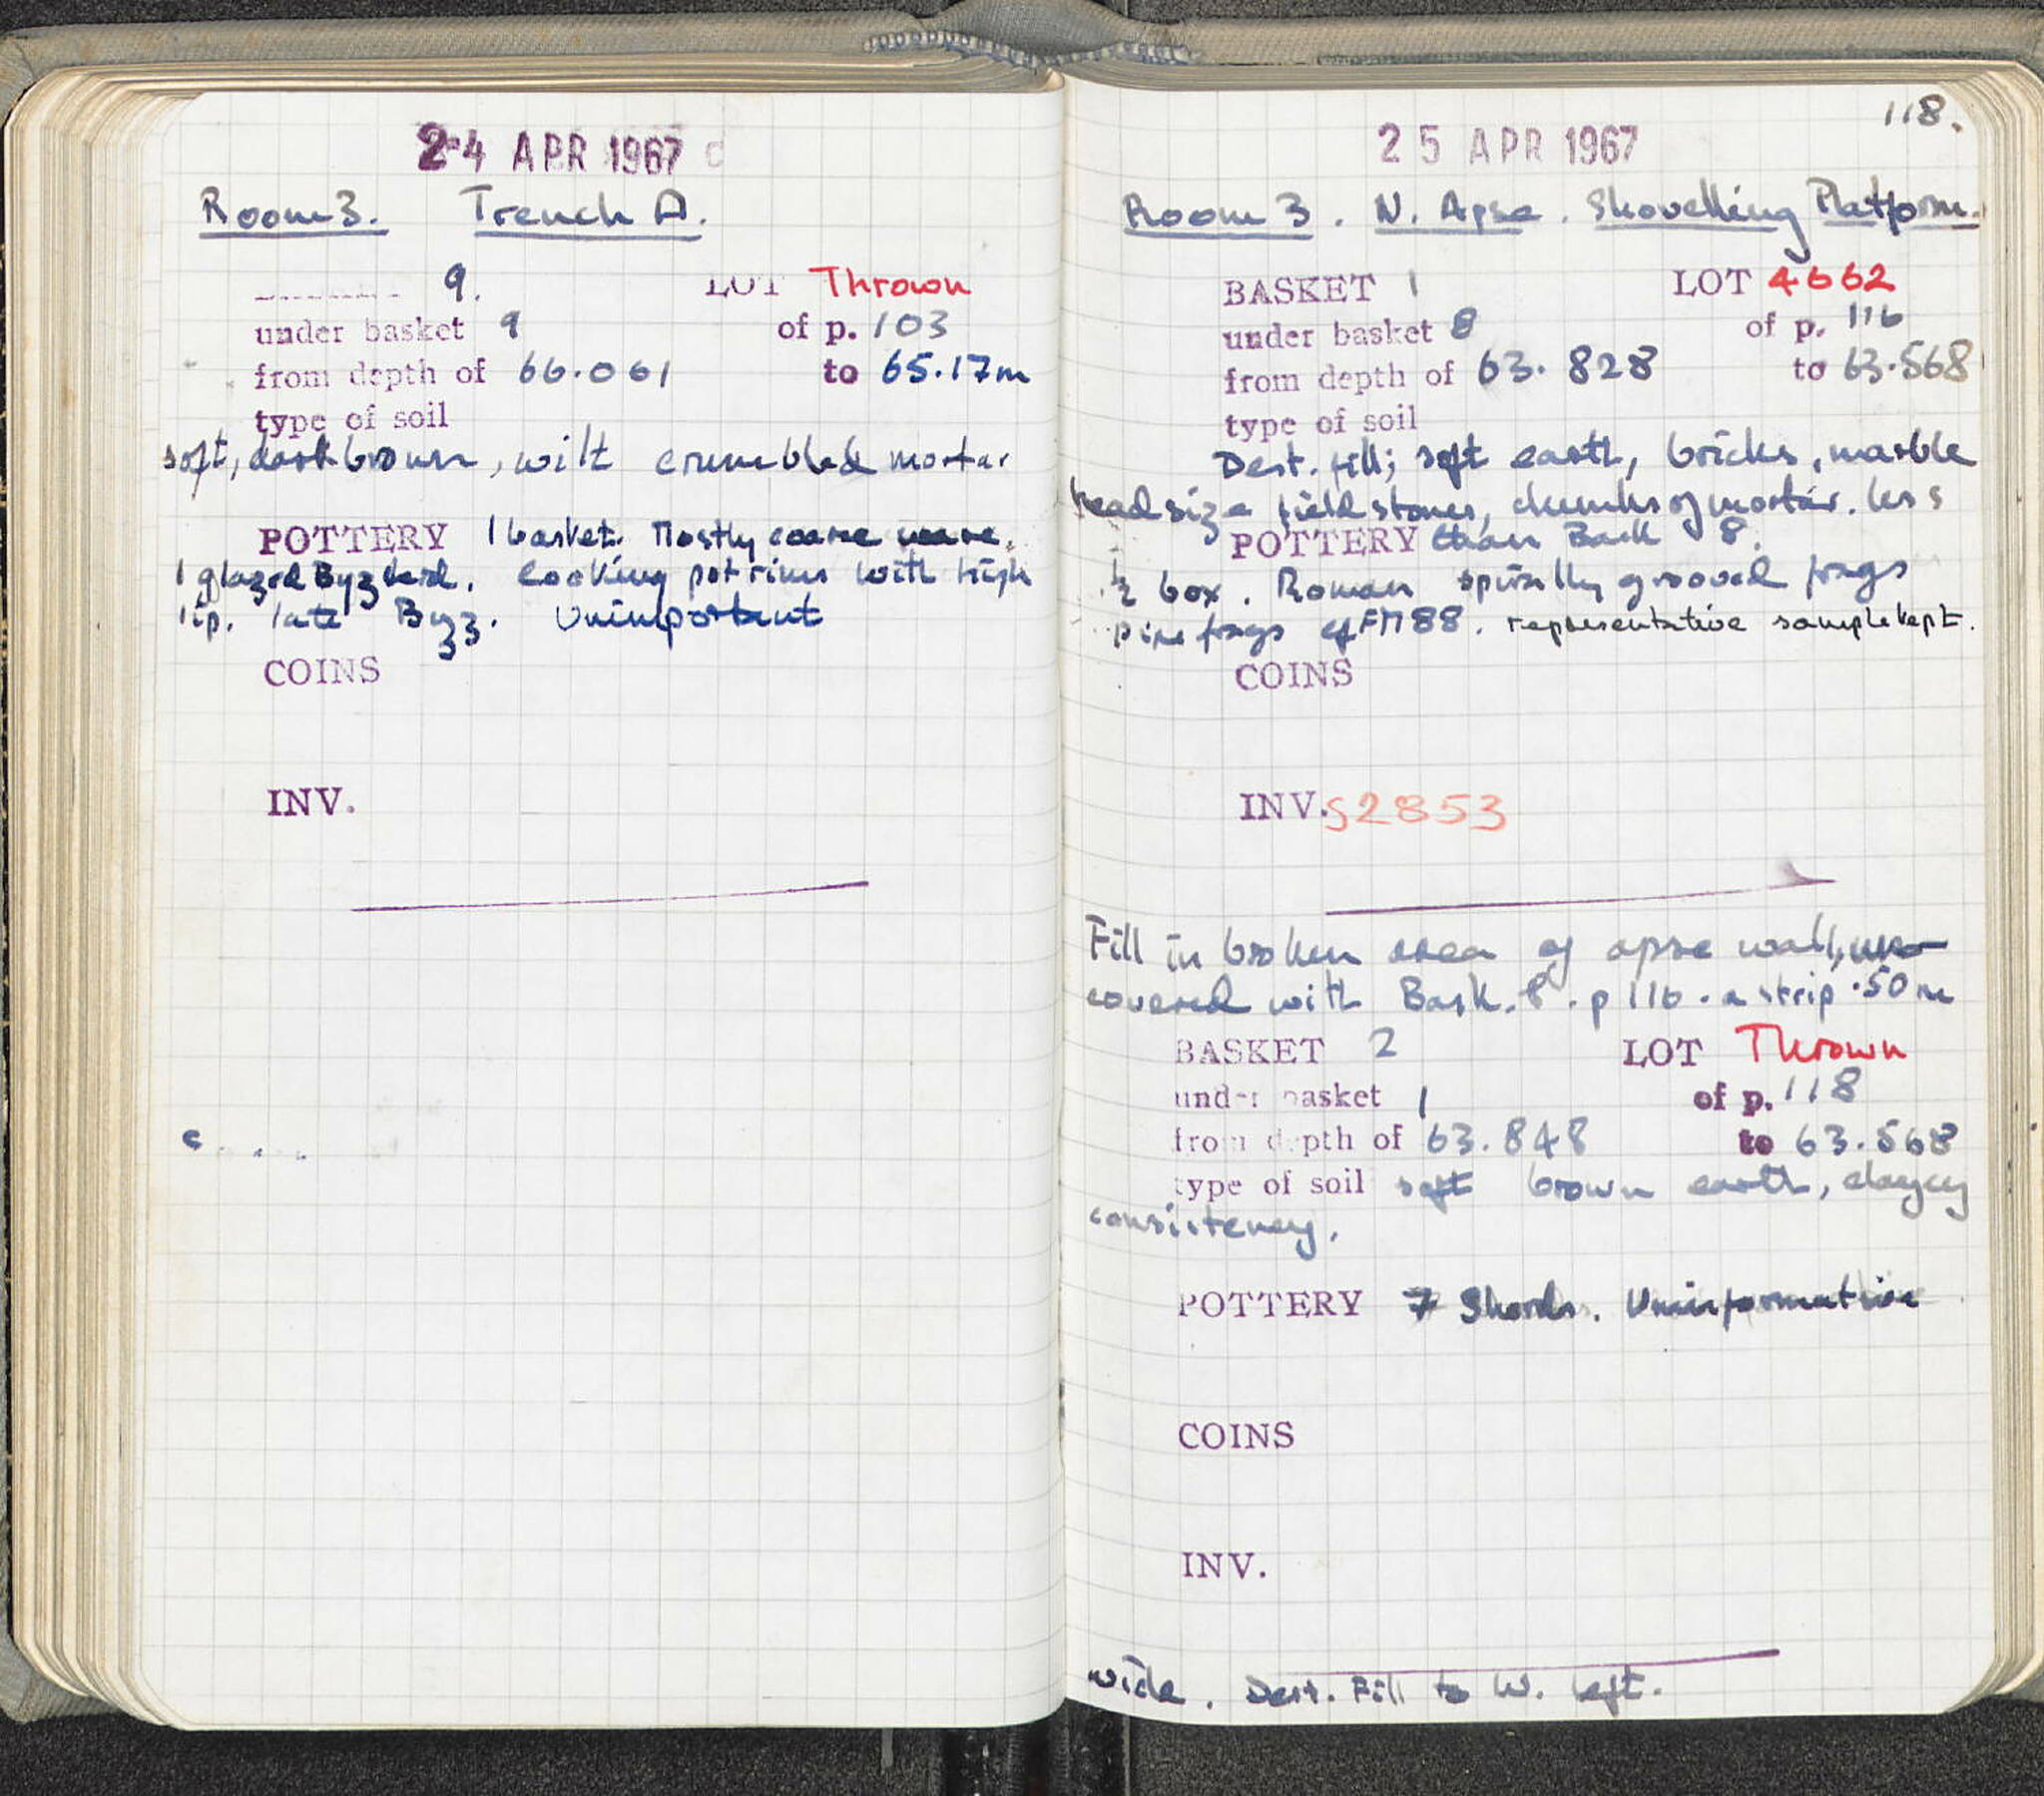 24 APR 1967
Room 3. Trench A.
9. LOT Thrown
under basket 9 of p. 103
from depth of 66.061 to 65.17m
type of soil
soft, dark brown, with crumbled mortar
POTTERY 1 basket. Mostly coarse ware.
1 glazed Byz sherd. Cooking pot rims with high
lip. late Byz. Unimportant
COINS
INV.
118.
25 APR 1967
Room 3. N. Apse. Shovelling Platform.
BASKET 1 LOT 4662
under basket 8 of p. 116
from depth of 63.828 to 63.568
type of soil
Dest. fill; soft earth, bricks, marble
head size field stones, chunks of mortar. less
POTTERY than Bask 8.
½ box. Roman spirally grooved frags
pipe frags of FM88. representative sample kept.
COINS
INV. S2853
Fill in broken area of apse wall, un-
covered with Bask. 8. p 116. a strip .50m
BASKET 2 LOT Thrown
under basket 1 of p. 118
from depth of 63.848 to 63.568
type of soil soft brown earth, clayey
consistency.
POTTERY 7 Sherds. Uninformative
COINS
INV.
wide. Dest. Fill to W. left.